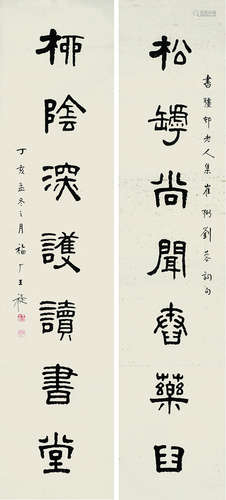 松罅尚聞舂藥臼
書彊邨老人集崔劉詞句
柳陰深護讀書堂
丁亥孟冬之月福厂王禔